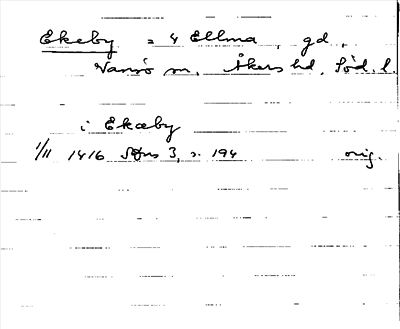 Ekeby = 4 Ellma, gd,
Vansö sn, Åkers hd, Söd. l.
i Ekæby
1/11 1416 SRhs 3, s. 194 orig.